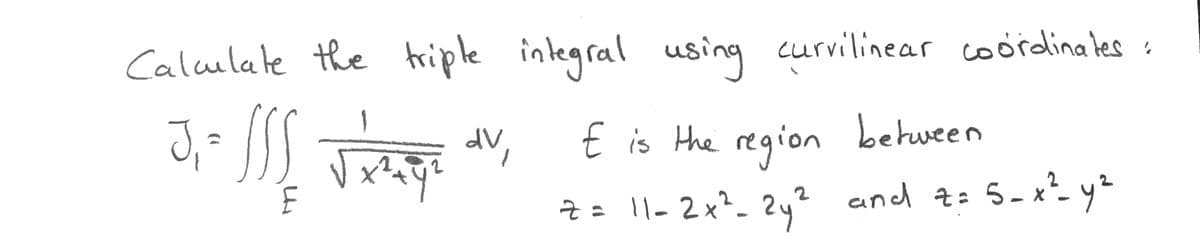 Calculate the triple integral using curvilinear coordinates :
J₁ = ∭_E 1/√(x²+y²) dV, E is the region between
z = 11-2x²-2y² and z = 5-x²-y²